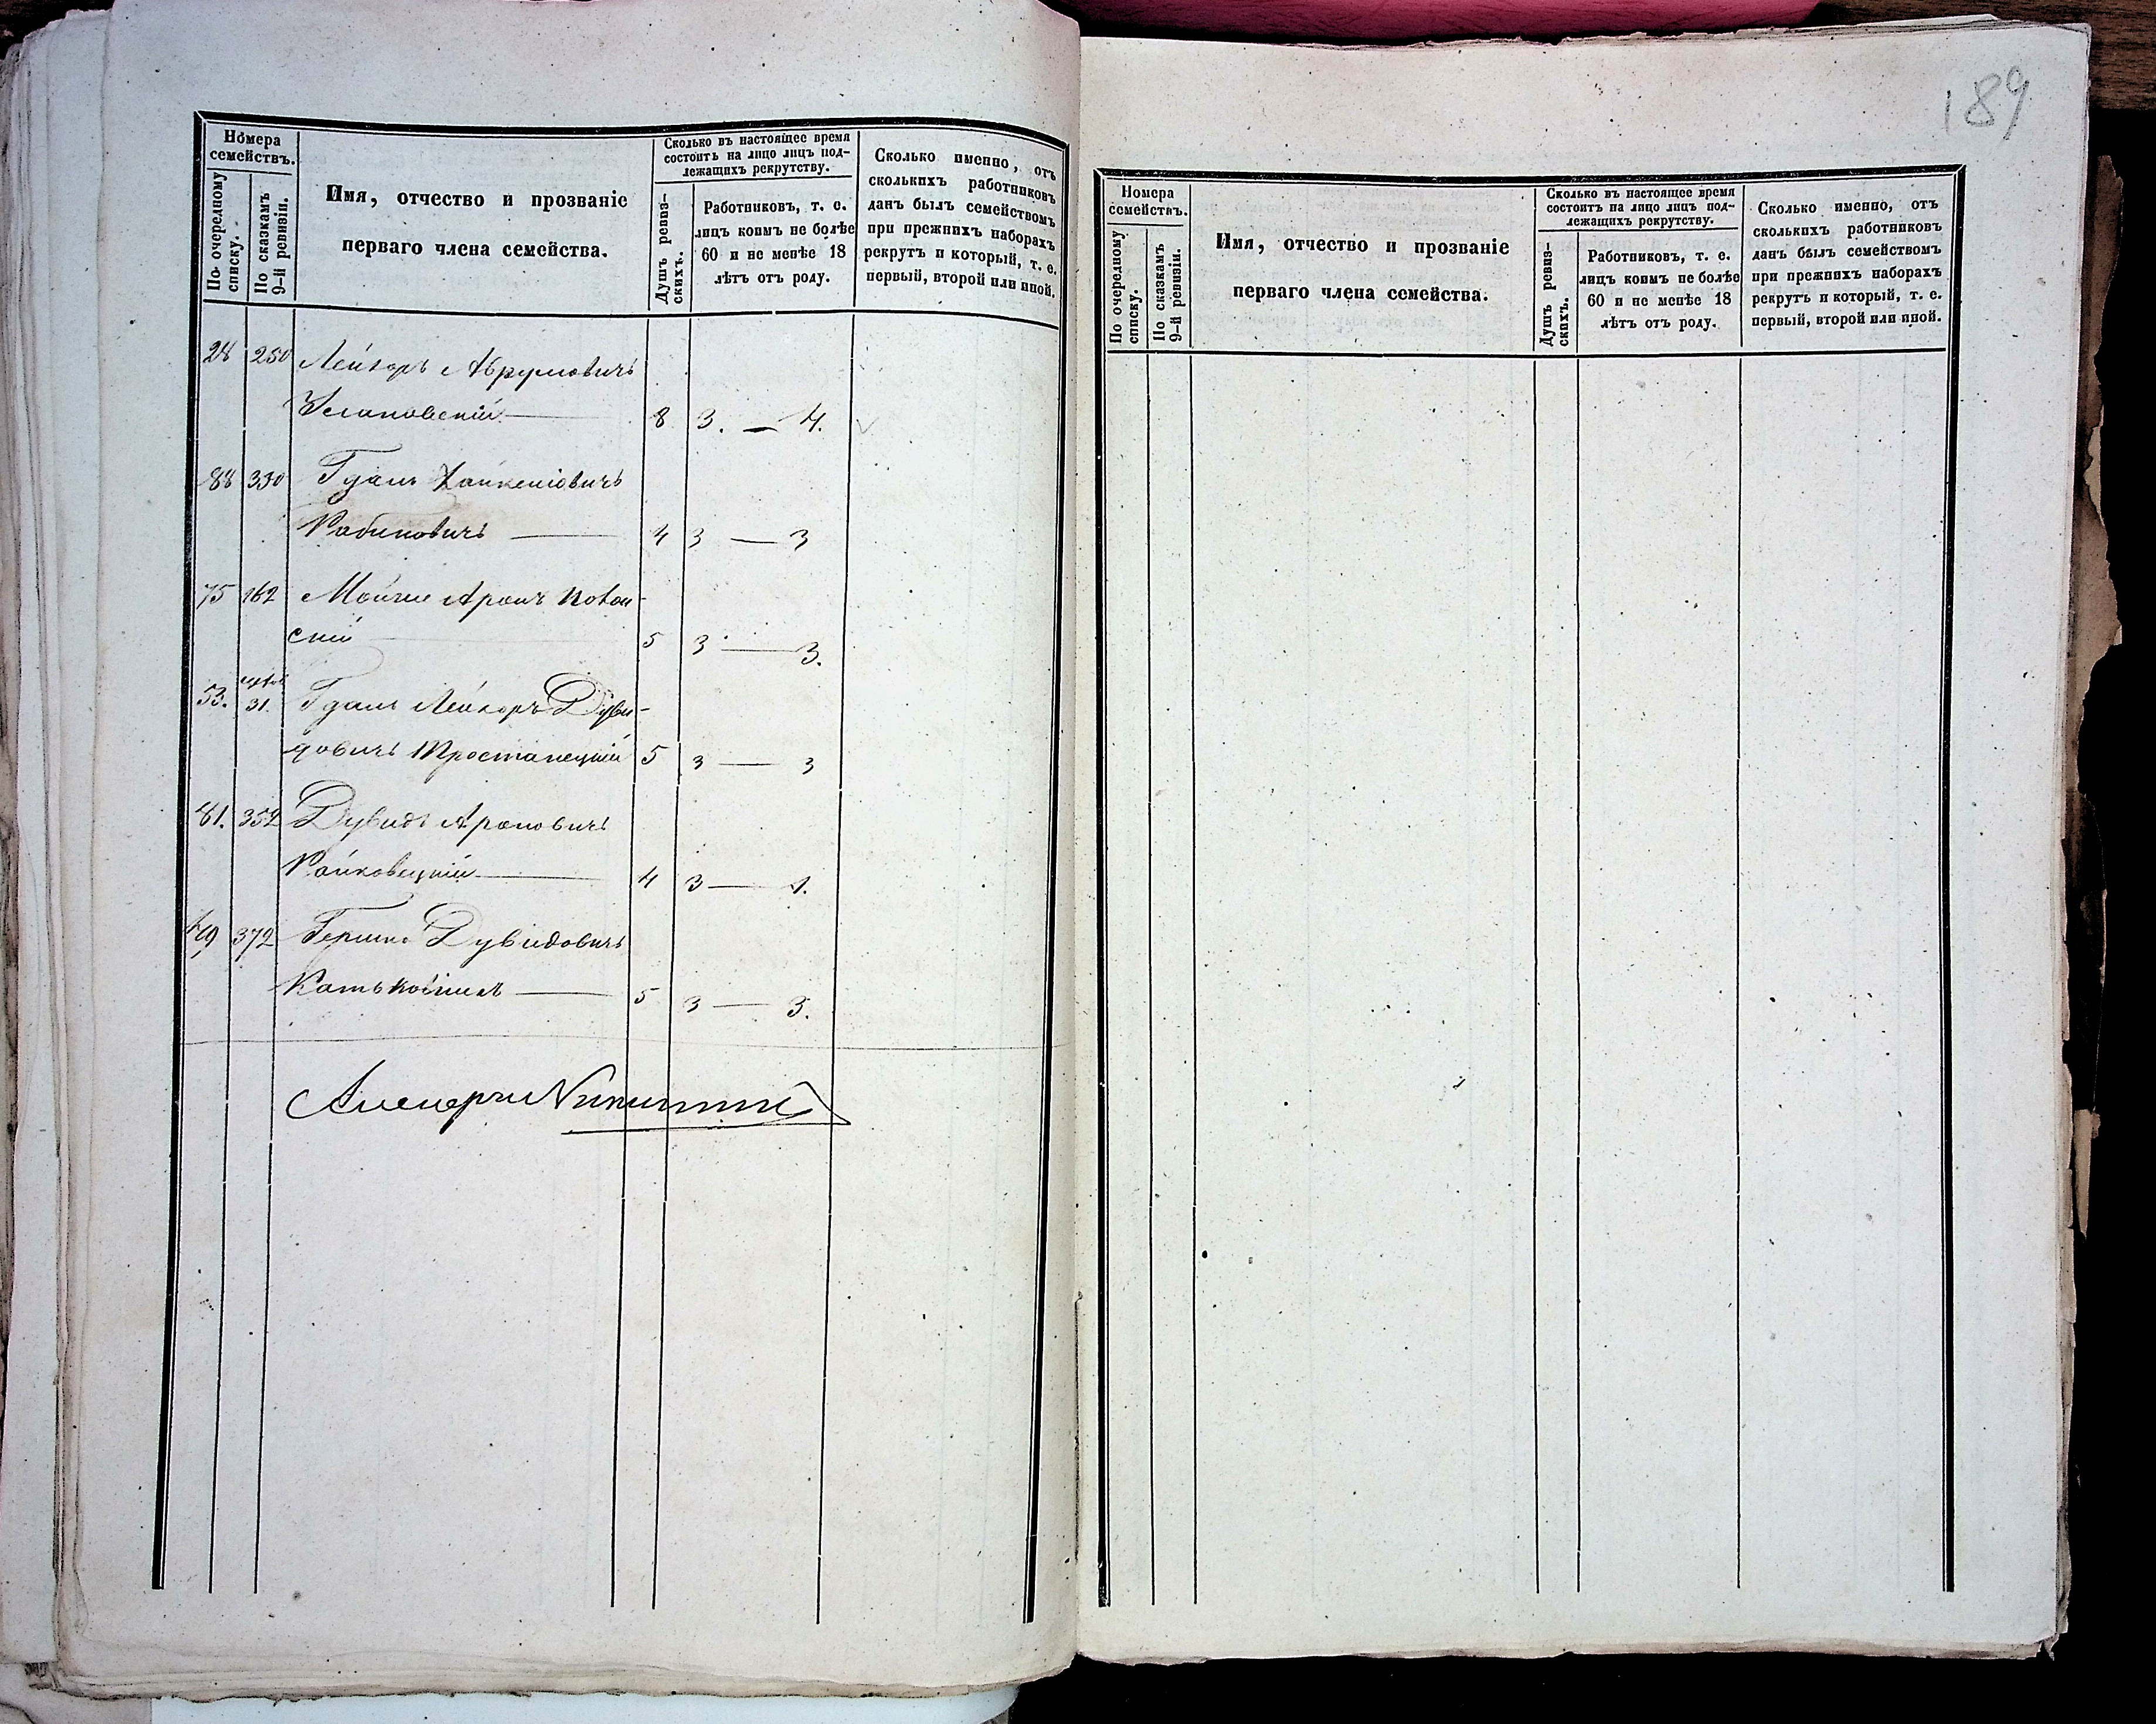 Номера семействъ.
По очередному списку.
По сказкамъ 9-й ревизіи.
Имя, отчество и прозваніе
перваго члена семейства.
Сколько въ настоящее время
состоитъ на лицо лицъ под-
лежащихъ рекрутству.
Душъ ревиз-
скихъ.
Работниковъ, т. е.
лицъ коимъ не болѣе
60 и не менѣе 18
лѣтъ отъ роду.
Сколько именно, отъ
сколькихъ работниковъ
данъ былъ семействомъ
при прежнихъ наборахъ
рекрутъ и который, т. е.
первый, второй или иной.
28 250 Лейзоръ Абрумовичъ
8 3. — 4.
88 330
Рабиновичъ — 4 3 — 3
75 162
скій 5 3 — 3.
53. 31. Лейзоръ Дуви-
довичъ Тростанецкій 5 3 — 3
81. 352 Дувидъ Ароновичъ
Райковецкій — 4 3 — 1.
372 Гершко Дувидовичъ
5 3 — 3.
189
Номера
семействъ.
По очередному
списку.
По сказкамъ
9-й ревизіи.
Имя, отчество и прозваніе
перваго члена семейства.
Сколько въ настоящее время
состоитъ на лицо лицъ под-
лежащихъ рекрутству.
Душъ ревиз-
скихъ.
Работниковъ, т. е.
лицъ коимъ не болѣе
60 и не менѣе 18
лѣтъ отъ роду.
Сколько именно, отъ
сколькихъ работниковъ
данъ былъ семействомъ
при прежнихъ наборахъ
рекрутъ и который, т. е.
первый, второй или иной.